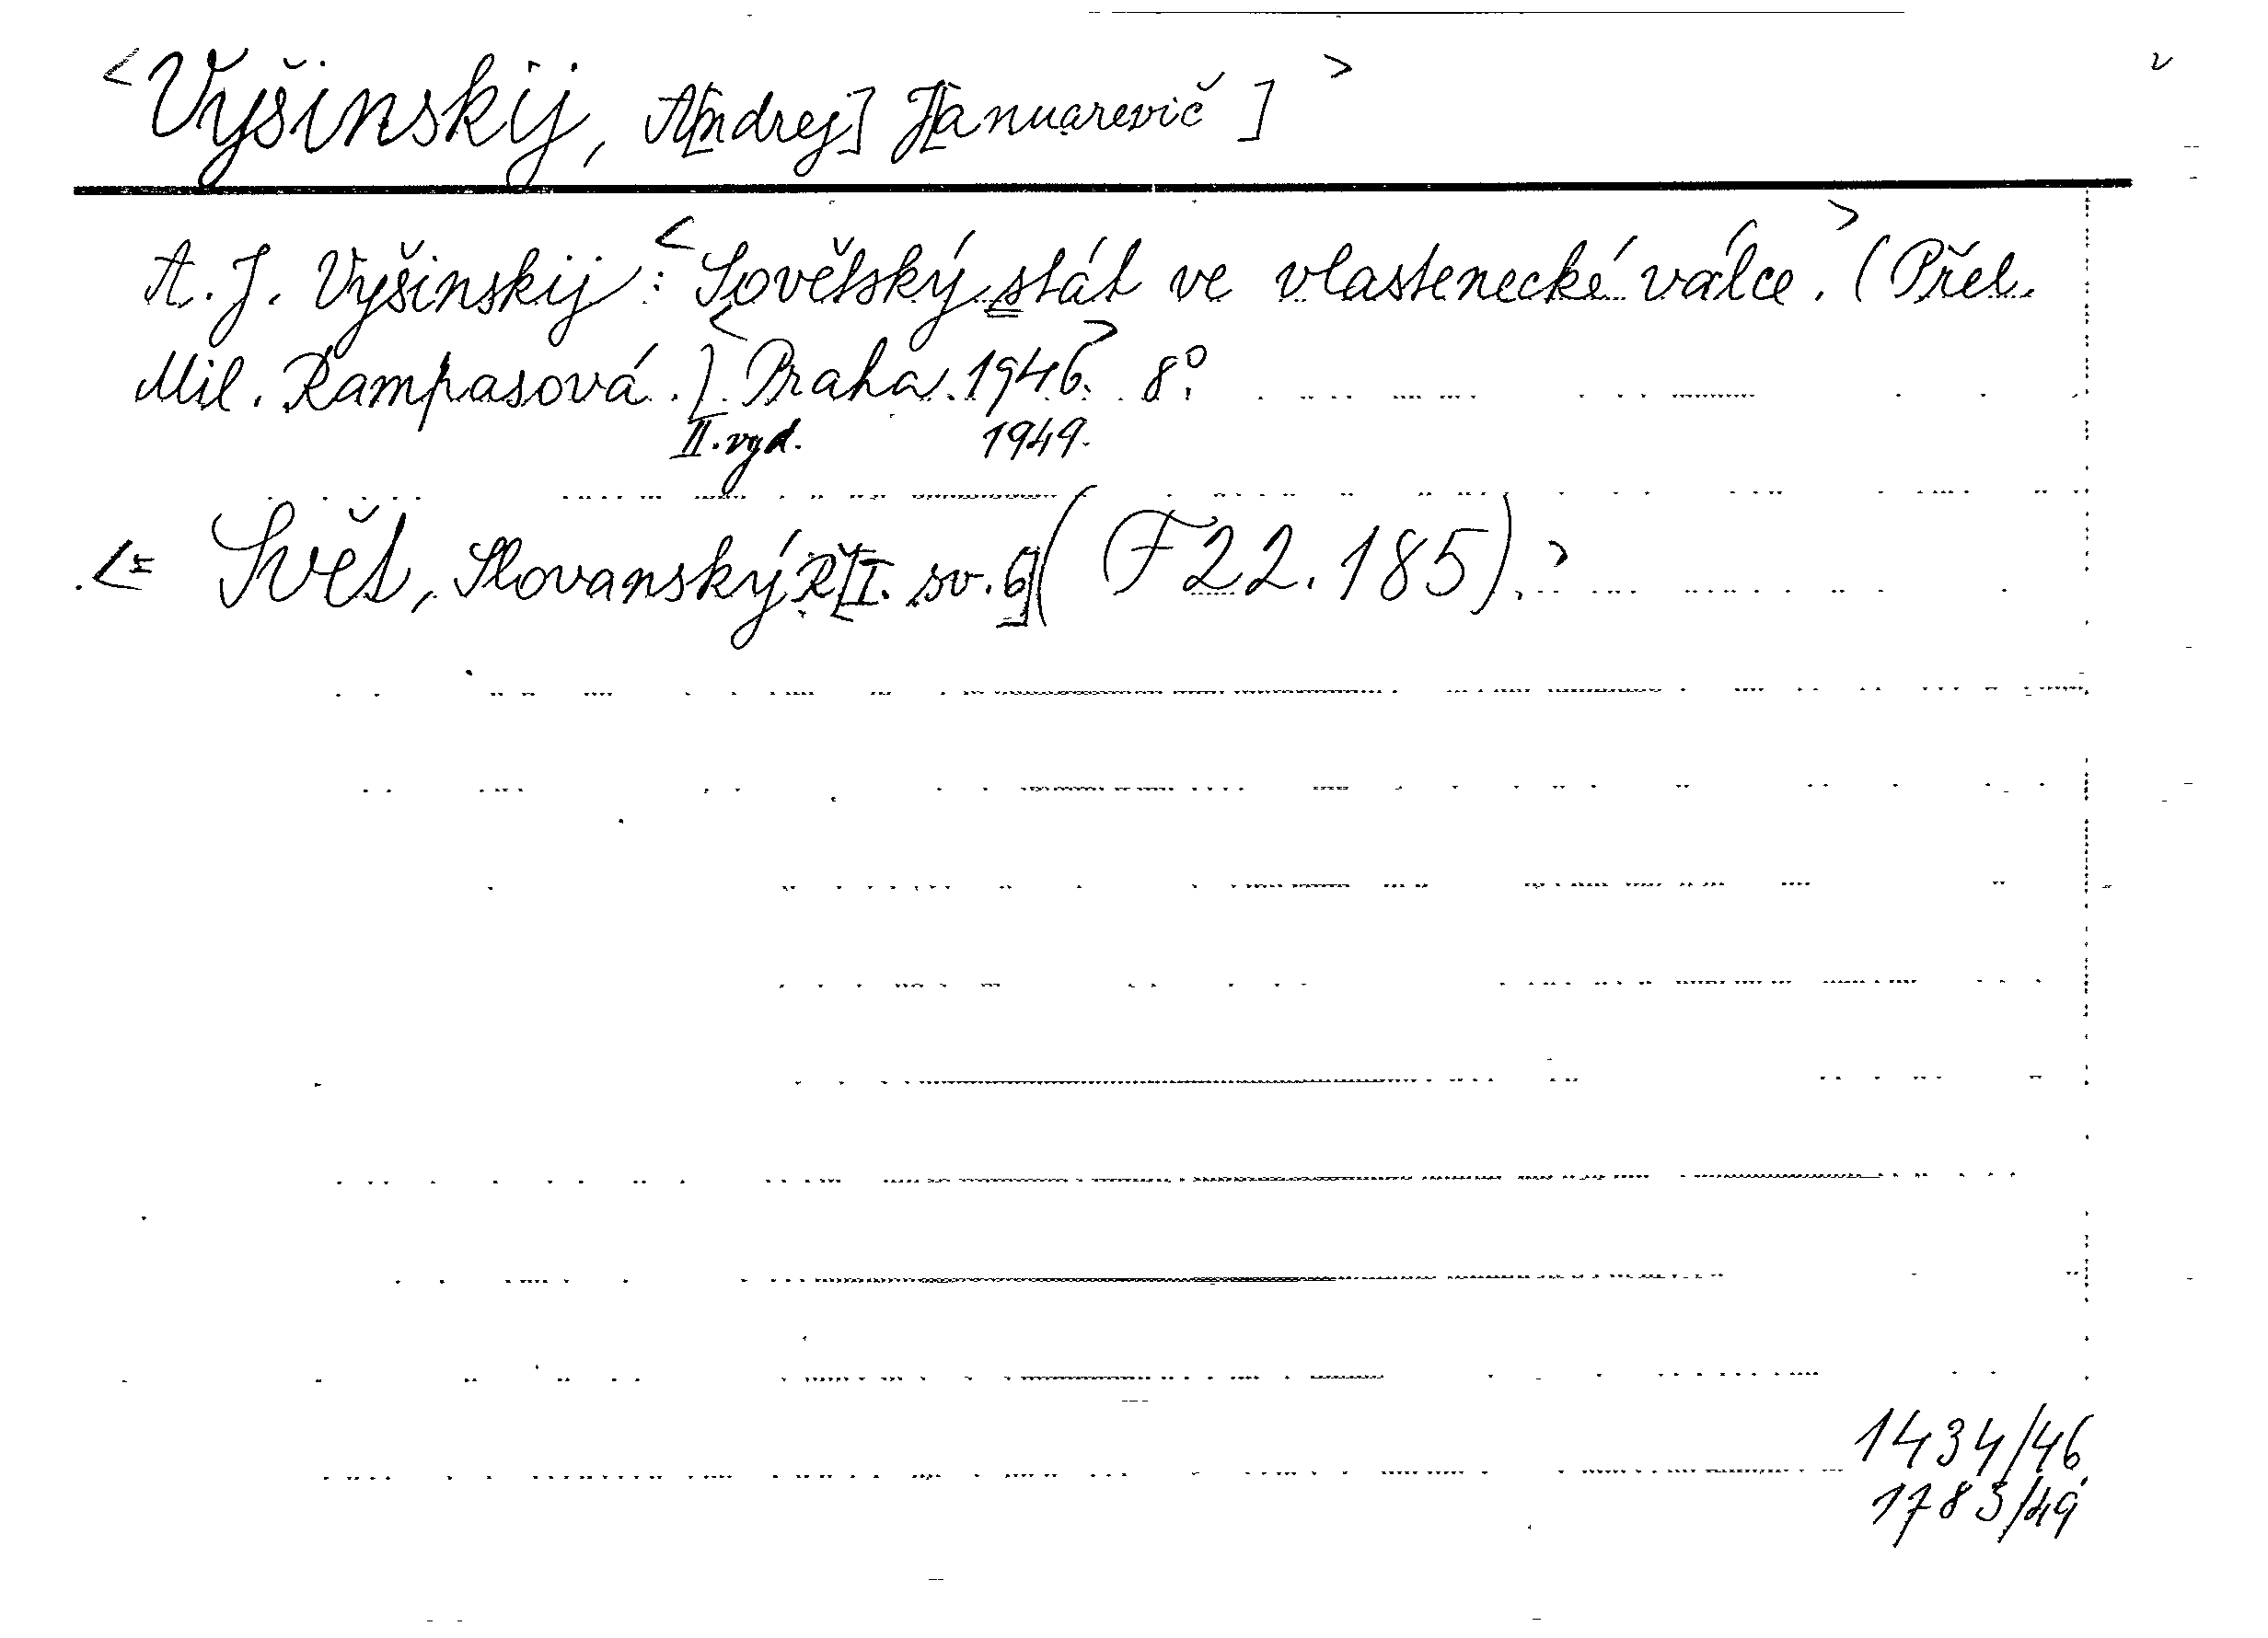 <Vyšinskij, A[ndrej] J[anuarevič]>
A. J. Vyšinskij: <Sovětský stát ve vlastenecké válce.> (Přel.
Mil. Rampasová.) <Praha. 1946.> 8°.
II. vyd. 1949.
<= Svět, Slovanský Ř[I. sv. 6] (F 22.185).>
1434/46
1783/49